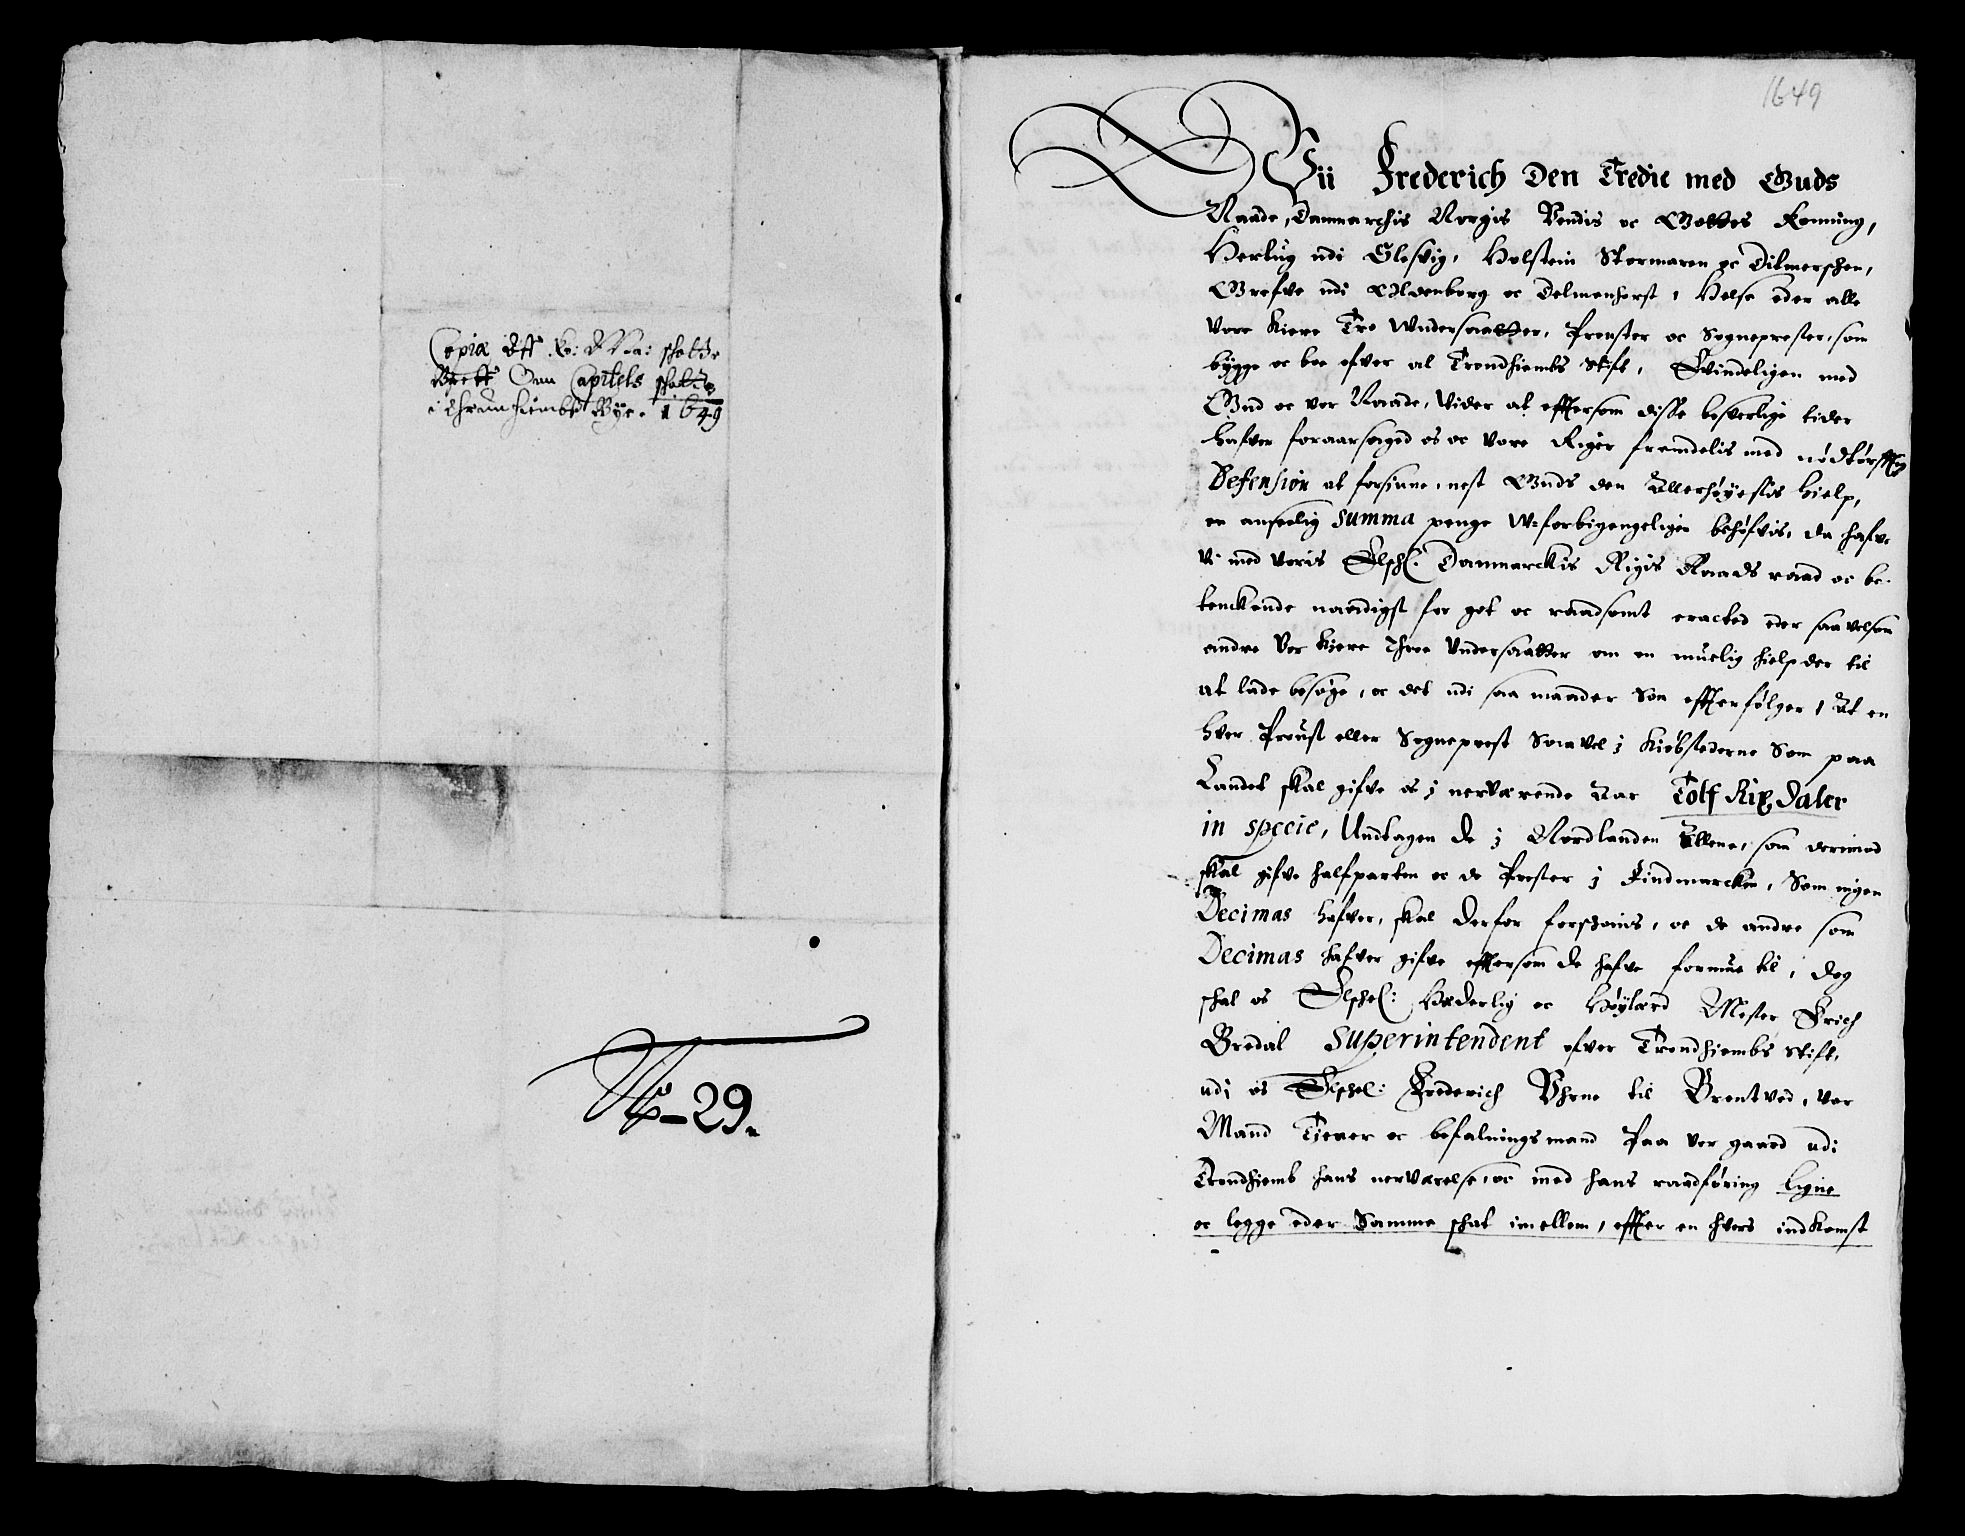 Copia Aff Ko: Ma: schatte
Breff Om Capitels schatt
i Thrundhiembs Bye. 1649
No - 29.
1649
Vii Frederich Den Tredie med Guds
Naade, Danmarchis Norgis Vendis oc Gottes Konning,
Hertug udi Slesvig, Holstein Stormaren oc Ditmerschen,
Grefve udi Oldenborg oc Delmenhorst, Helse eder alle
Vore kiere Tro Undersaatter, Prouster oc Sogneprester, som
bygge oc boe ofver al Trondhiembs Stift, Evindeligen med
Gud oc vor Naade, Vider at effersom disse besverlige tider
hafver foraarsaged os oc vore Riger fremdelis med nødtørfftig
Defension at forsiune, nest Guds den Allerhøyestis hielp,
en anseelig summa penge Uforbigengeligen behøfvis, da hafve
Vi med voris Elschel: Danmarckis Rigis Raads raad oc be-
tenckende naadigst for got oc raadsomt eracted eder saavelsom
andre Vor kiere Throe Undersaatter om en muelig hielp der til
at lade besøge, oc det udi saa maader Som effterfølger, At en
hver Proust eller Sogneprest Saavel i Kiøbstederne Som paa
Landet skal gifve os i nerværende Aar Tolf Rix Daler
in specie, Undtagen de i Nordlanden Allene, som derimod
skal gifve halfparten oc de Prester i Findmarcken, Som ingen
Decimas hafver, skal derfor forschonis, oc de andre som
Decimas hafver gifve effersom de hafve formue til, dog
schal os Elschel: Hæderlig oc Høylærd Mester Erich
Bredal Superintendent ofver Trondhiembs Stift,
udi os Elschel: Frederich Vhrne til Brentved, Vor
Mand Tiener oc befalningsmand Paa vor gaard udi
Trondhiemb hans nerværelse, oc med hans raadføring ligne
oc legge eder Samme schat imellem, effter en hvers indkomst